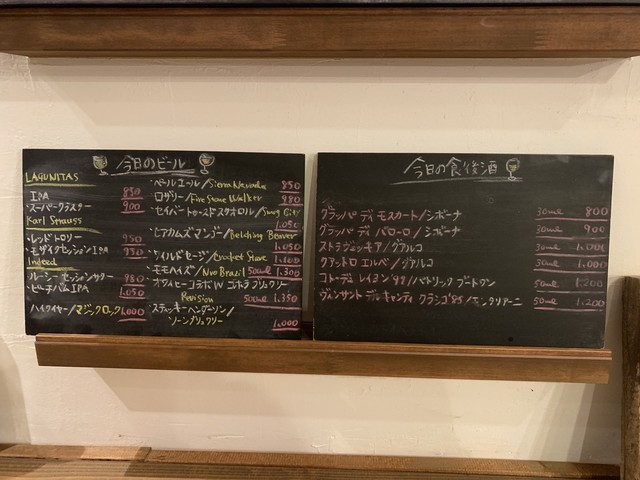 今日のビール
LAGUNITAS
IPA 850
・スーパークラスター 900
Karl Strauss
・レッドトロリー 950
・モザイクセッションIPA 950
Indeed
・ルーシーセッションサワー 980
・ピーチバムIPA 1,050
ハイワイヤー/マジックロック 1,000
・ペールエール/Sierra Nevada 850
・ロザリー/Firestone Walker 980
・セイバートゥース
1,050
・ヒアカムズマンゴー/Belching Beaver
1,050
・ワイルドセージン/Crooked Stave
1,100
・モモハイズ/Novo Brazil 500ml 1,300
Revision 500ml 1,350
・スティッキーヘンダーソン/
1,000
今日の食後酒
グラッパ ディ モスカート/シボーナ 30ml 800
グラッパ ディ バローロ/シボーナ 30ml 900
ストラヴェッキア/グアルコ 30ml 1,000
クアットロ エルベ/グアルコ 30ml 1,000
コトーデュ レイヨン '98/パトリック ブードワン 50ml 1,200
ヴィンサント デル キャンティ クラシコ '85/ 50ml 1,200